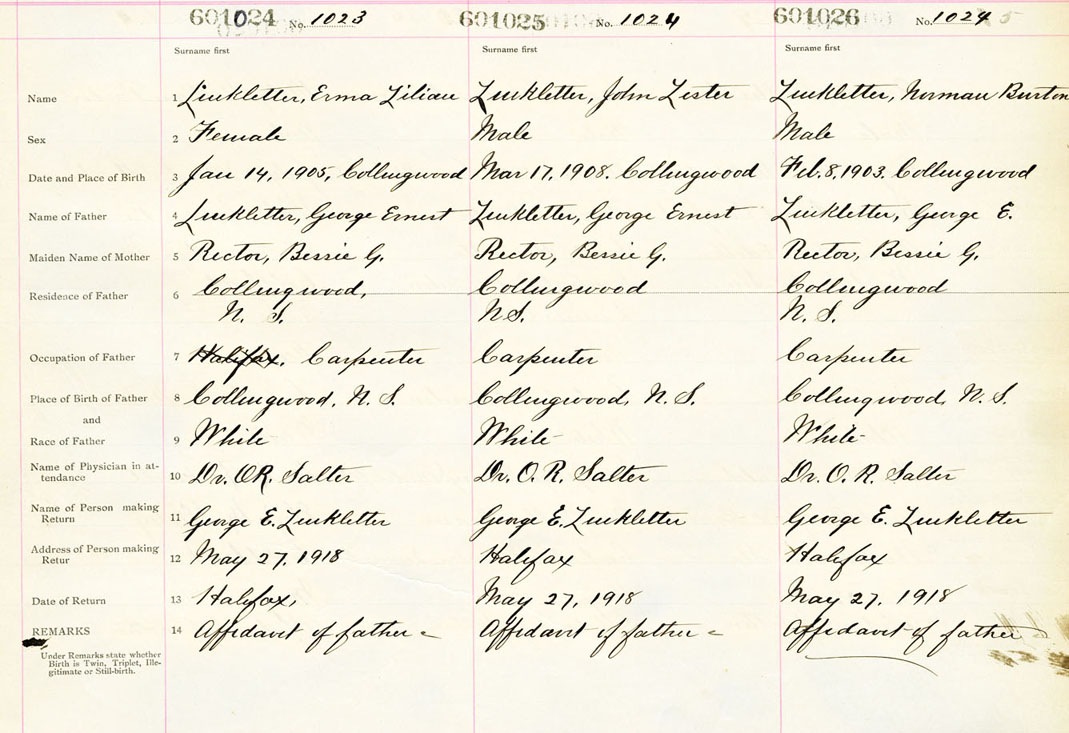 601024 No. 1023 601025 No. 1024 601026 No. 1024 5
Surname first Surname first Surname first
Name 1 Linkletter, Erma Lilian Linkletter, John Lester Linkletter, Norman Burton
Sex 2 Female Male Male
Date and Place of Birth 3 Jan 14, 1905, Collingwood Mar 17, 1908. Collingwood Feb. 8, 1903. Collingwood
Name of Father 4 Linkletter, George Ernest Linkletter, George Ernest Linkletter, George E.
Maiden Name of Mother 5 Rector, Bessie G. Rector, Bessie G. Rector, Bessie G.
Residence of Father 6 Collingwood, Collingwood Collingwood
N. S. N.S. N. S.
Occupation of Father 7 Halifax, Carpenter Carpenter Carpenter
Place of Birth of Father 8 Collingwood, N. S. Collingwood, N. S. Collingwood, N. S.
and
Race of Father 9 White White White
Name of Physician in at-
tendance 10 Dr. O.R. Salter Dr. O. R. Salter Dr. O. R. Salter
Name of Person making
Return 11 George E. Linkletter George E. Linkletter George E. Linkletter
Address of Person making
Retur 12 May 27, 1918 Halifax Halifax
Date of Return 13 Halifax, May 27, 1918 May 27, 1918
REMARKS 14 Affidavit of father Affidavit of father Affidavit of father
Under Remarks state whether
Birth is Twin, Triplet, Ille-
gitimate or Still-birth.